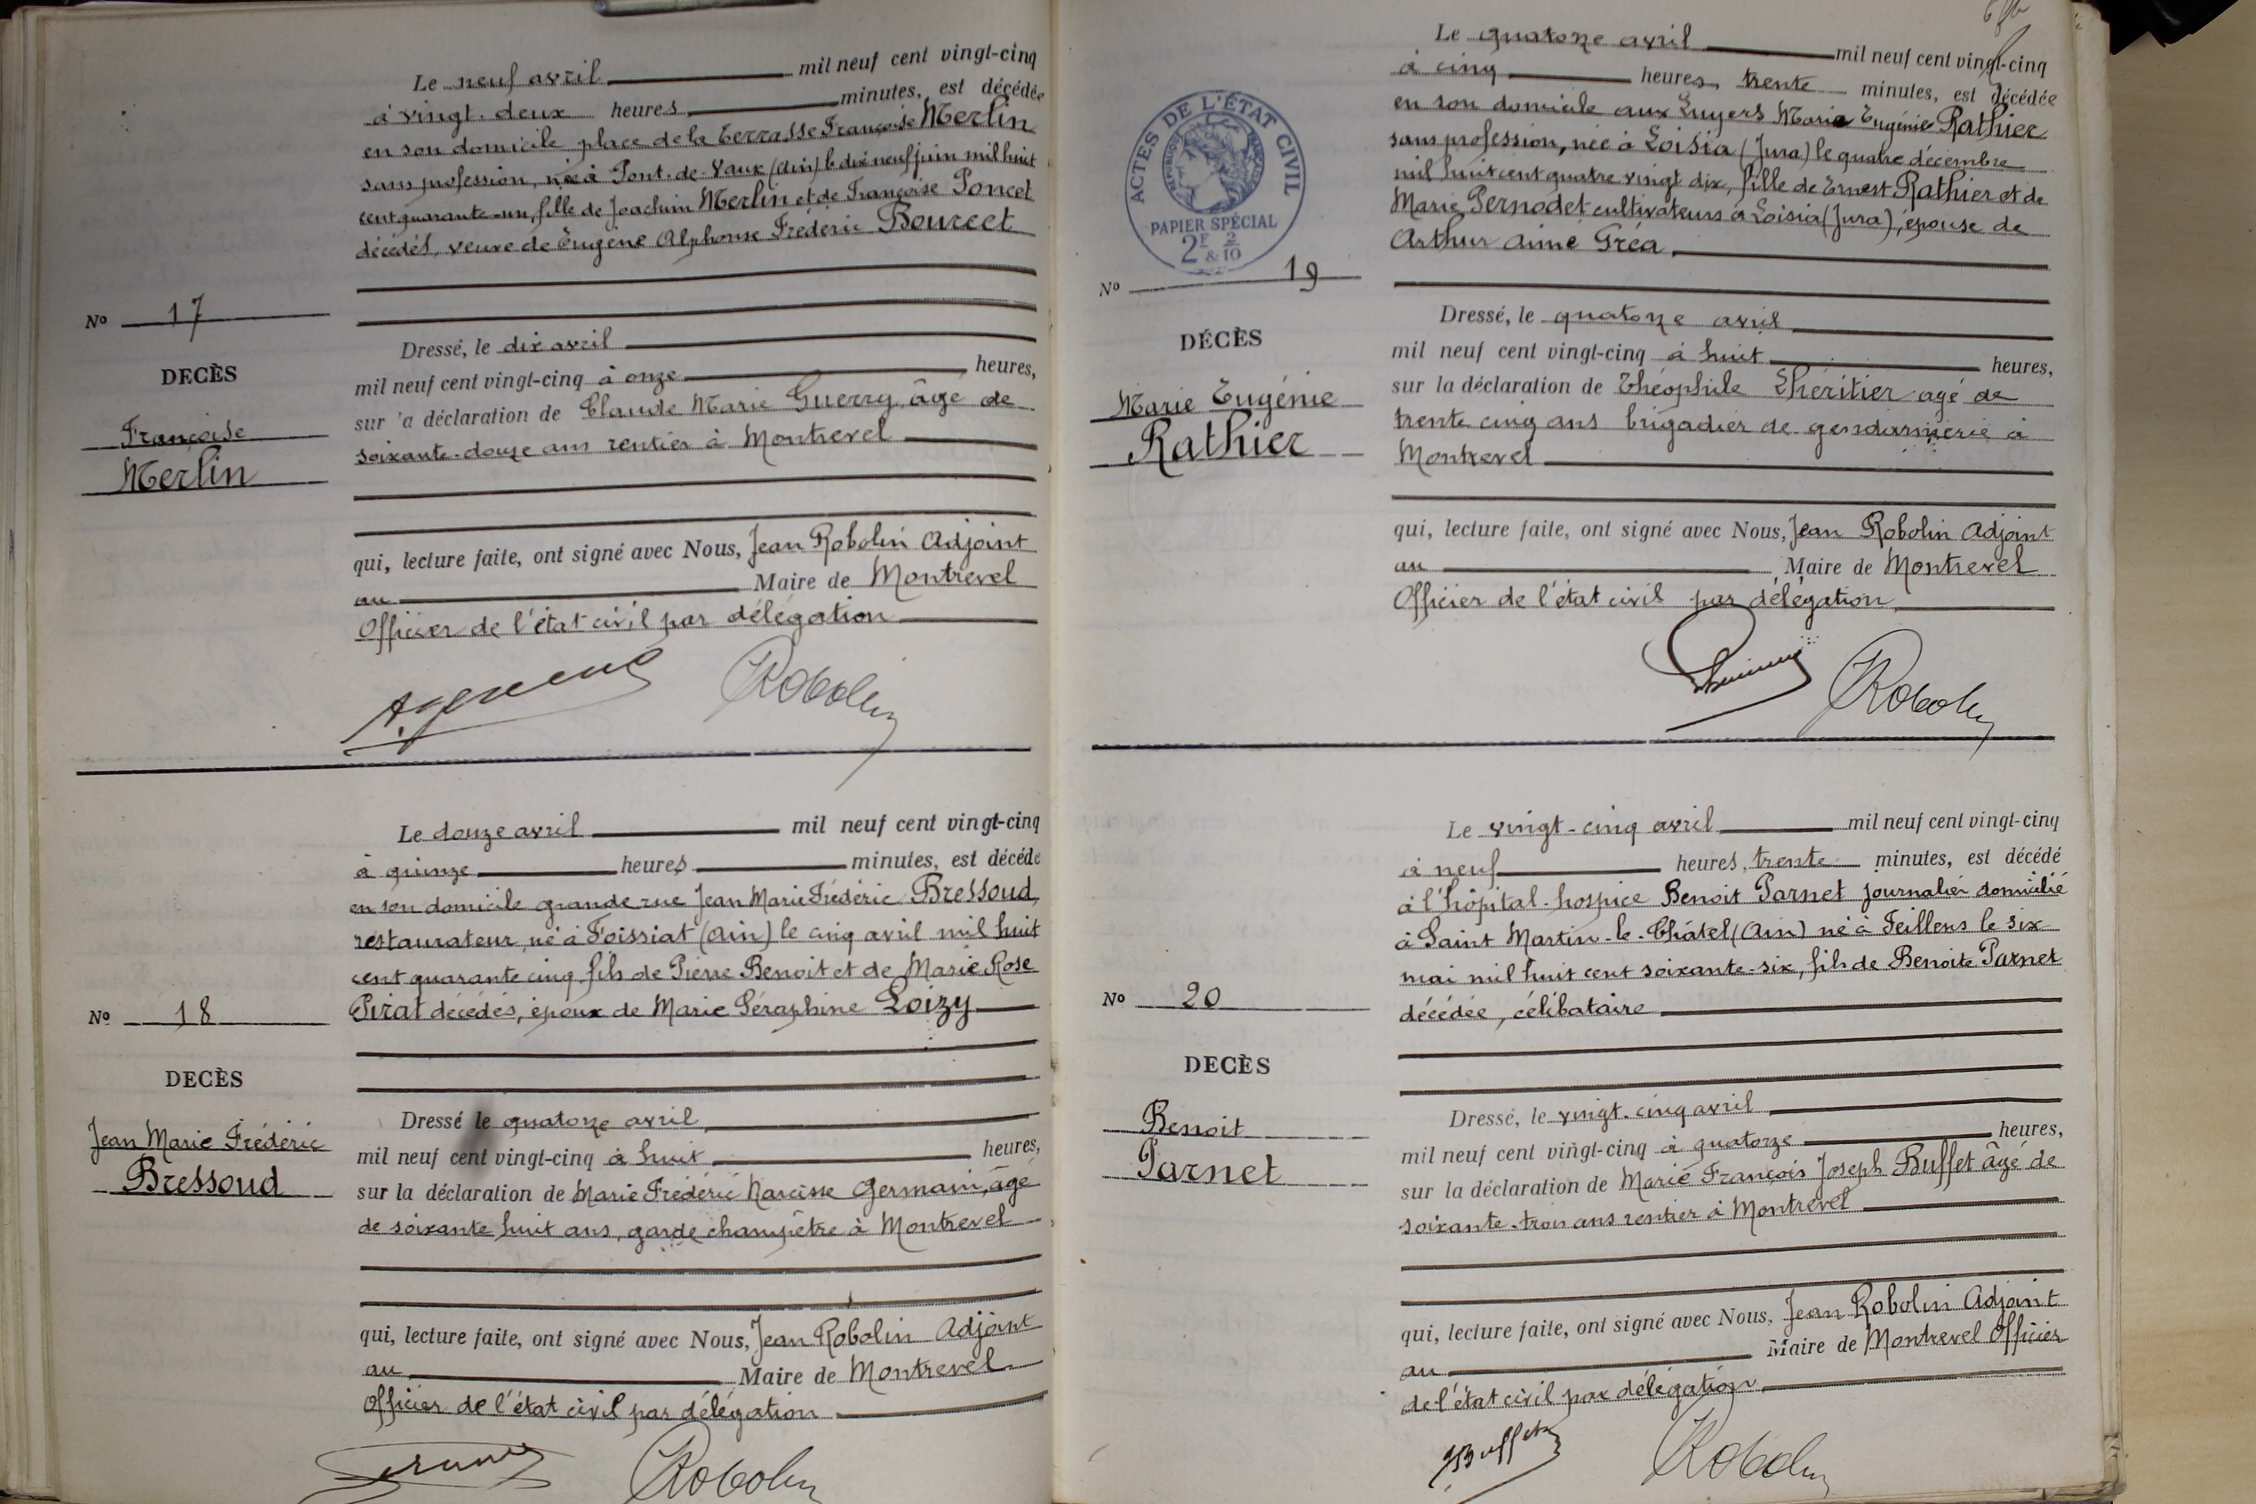 Le neuf avril mil neuf cent vingt-cinq
à vingt-deux heures minutes, est décédée
en son domicile place de la Terrasse Françoise Merlin
sans profession, née à Pont-de-Vaux (Ain) le dix neuf juin mil huit
cent quarante-un, fille de Joachim Merlin et de Françoise Poncet
décédés, veuve de Eugène Alphonse Frédéric Bourcet
No 17
DECÈS
Françoise
Merlin
Dressé, le dix avril
mil neuf cent vingt-cinq à onze heures,
sur 'a déclaration de Claude Marie Guerry, âgé de
soixante-douze ans rentier à Montrevel
qui, lecture faite, ont signé avec Nous, Jean Robolin Adjoint
au Maire de Montrevel
Officier de l'état civil par délégation
Robolin
Le douze avril mil neuf cent vingt-cinq
à quinze heures minutes, est décédé
en son domicile grande rue Jean Marie Frédéric Bressoud,
restaurateur, né à Foissiat (Ain) le cinq avril mil huit
cent quarante cinq, fils de Pierre Benoit et de Marie Rose
Pirat décédés, époux de Marie Séraphine Loizy
No 18
DECÈS
Jean Marie Frédéric
Bressoud
Dressé le quatorze avril
mil neuf cent vingt-cinq à huit heures,
sur la déclaration de Marie Frédéric Narcisse Germain, âgé
de soixante huit ans, garde champêtre à Montrevel
qui, lecture faite, ont signé avec Nous, Jean Robolin Adjoint
au Maire de Montrevel
Officier de l'état civil par délégation
Robolin
Le quatorze avril mil neuf cent vingt-cinq
à cinq heures, trente minutes, est décédée
en son domicile aux Luyers Marie Eugénie Rathier
sans profession, née à Loisia (Jura) le quatre décembre
mil huit cent quatre vingt dix, fille de Ernest Rathier et de
Marie Pernodet cultivateurs à Loisia (Jura), épouse de
Arthur Aimé Gréa
ACTES DE L'ÉTAT CIVIL
PAPIER SPÉCIAL
2F & 2/10
No 19
DÉCÈS
Marie Eugénie
Rathier
Dressé, le quatorze avril
mil neuf cent vingt-cinq à huit heures,
sur la déclaration de Théophile Lhéritier agé de
trente cinq ans brigadier de gendarmerie à
Montrevel
qui, lecture faite, ont signé avec Nous, Jean Robolin Adjoint
au Maire de Montrevel
Officier de l'état civil par délégation
Robolin
Le vingt-cinq avril mil neuf cent vingt-cinq
à neuf heures, trente minutes, est décédé
à l'hôpital-hospice Benoit Parnet journalier domicilié
à Saint Martin-le-Châtel (Ain) né à Feillens le six
mai mil huit cent soixante-six, fils de Benoite Parnet
décédée, célibataire
No 20
DECÈS
Benoit
Parnet
Dressé, le vingt-cinq avril
mil neuf cent vingt-cinq à quatorze heures,
sur la déclaration de Marie François Joseph Buffet âgé de
soixante-trois ans rentier à Montrevel
qui, lecture faite, ont signé avec Nous, Jean Robolin Adjoint
au Maire de Montrevel Officier
de l'état civil par délégation
Robolin